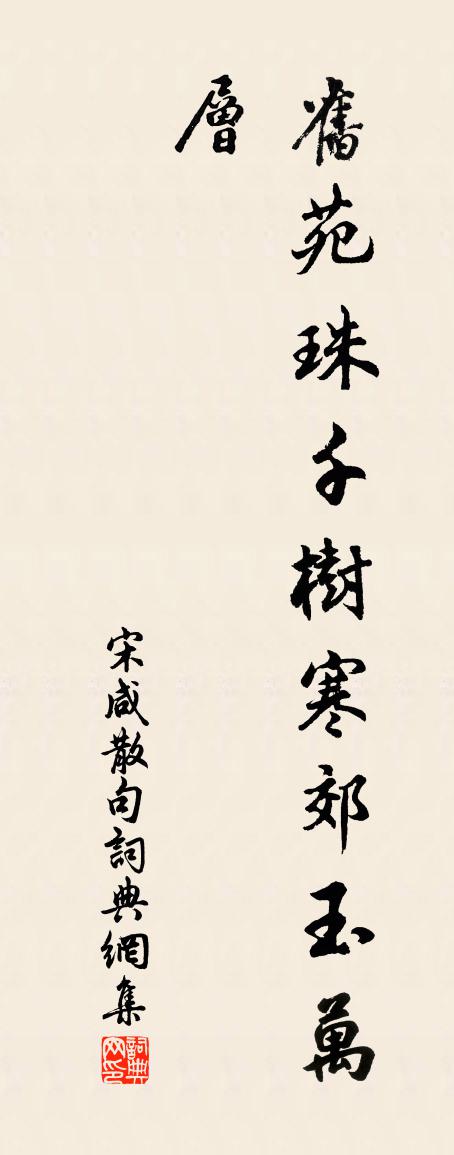 舊苑珠千樹寒郊玉萬
層
宋咸散句詞典網集
詞典網印